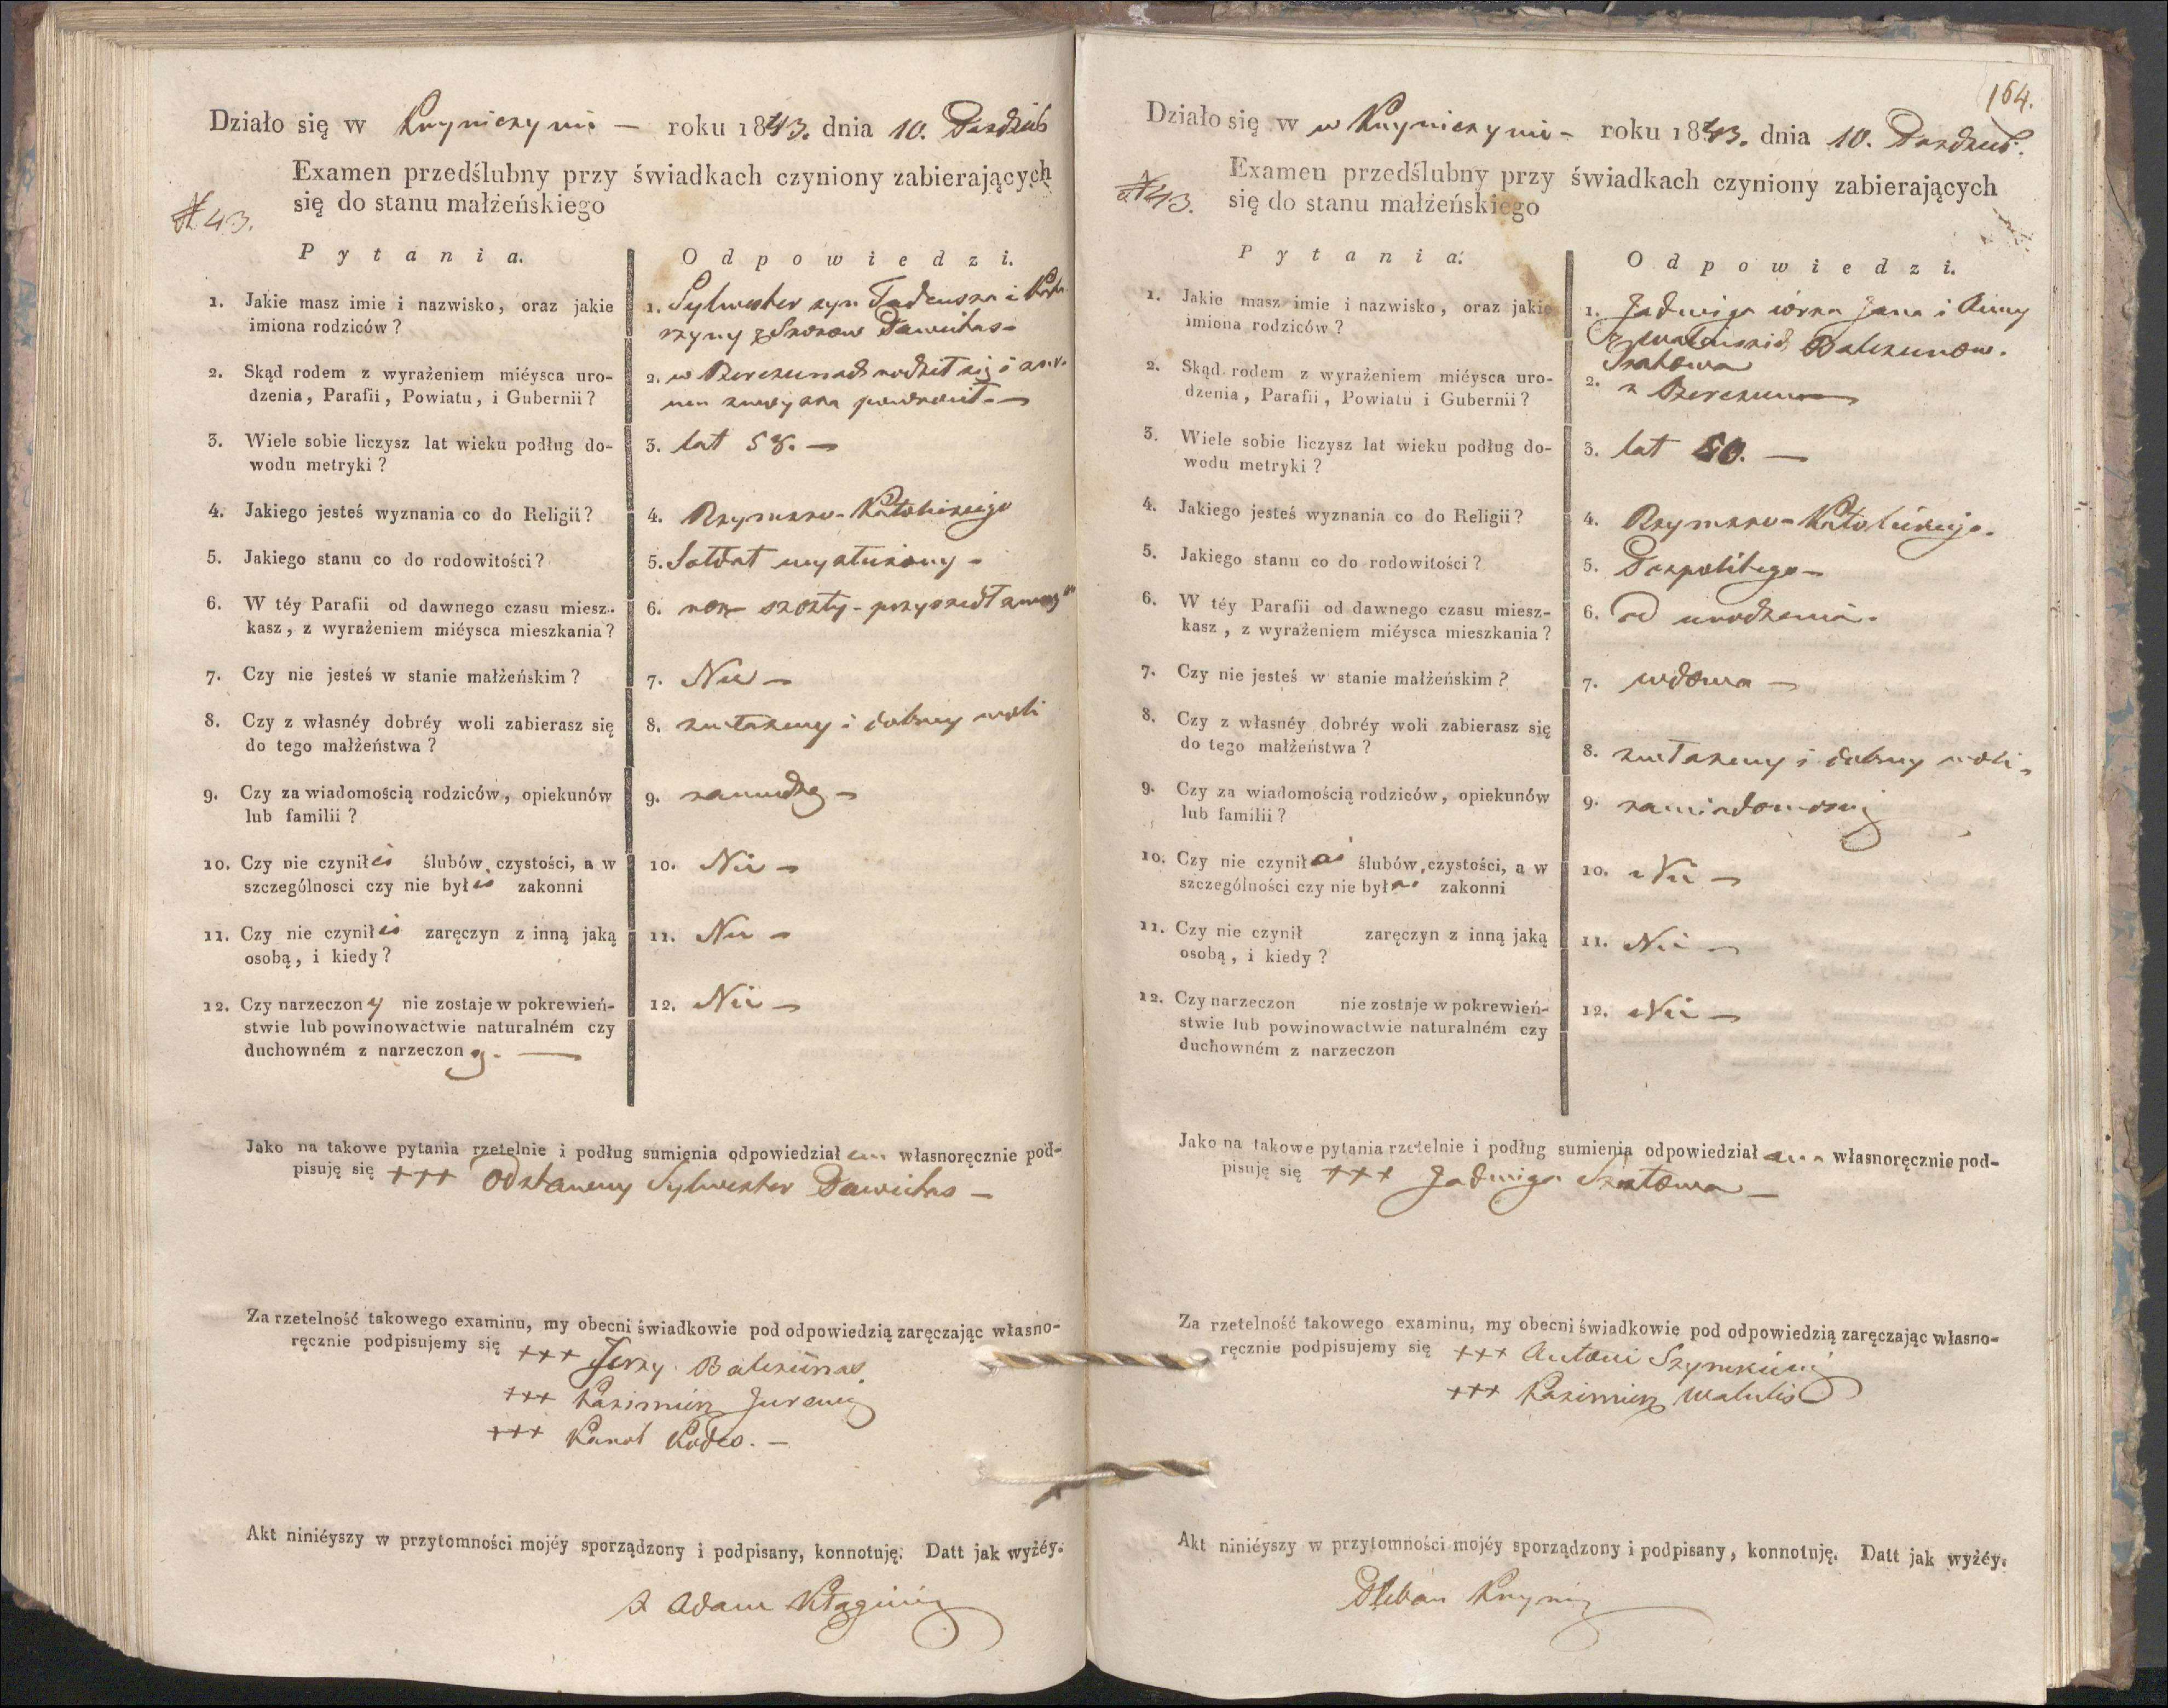 Działo się w Knyniczynie — roku 1843. dnia 10. Paździć
Examen przedślubny przy świadkach czyniony zabierających
się do stanu małżeńskiego
N 43.
Pytania.
Odpowiedzi.
1. Jakie masz imie i nazwisko, oraz jakie
imiona rodziców?
1. Sylwester syn Tadeusza i Kata-
rzyny z
2. Skąd rodem z wyrażeniem miéysca uro-
dzenia, Parafii, Powiatu, i Gubernii?
2. w rodził się i
powrócił —
3. Wiele sobie liczysz lat wieku podług do-
wodu metryki?
3. lat 58. —
4. Jakiego jesteś wyznania co do Religii?
4. Rzymsko-Katolickiego
5. Jakiego stanu co do rodowitości?
5. Sołdat wysłużony -
6. W téy Parafii od dawnego czasu miesz-
kasz, z wyrażeniem miéysca mieszkania?
6. rok szósty - przyszedł
7. Czy nie jesteś w stanie małżeńskim?
7. Nie —
8. Czy z własnéy dobréy woli zabierasz się
do tego małżeństwa?
8. z własney i dobrey woli
9. Czy za wiadomością rodziców, opiekunów
lub familii?
9. za wiedzą —
10. Czy nie czyniłeś ślubów czystości, a w
szczególnosci czy nie byłeś zakonni
10. Nie —
11. Czy nie czyniłeś zaręczyn z inną jaką
osobą, i kiedy?
11. Nie —
12. Czy narzeczony nie zostaje w pokrewień-
stwie lub powinowactwie naturalném czy
duchowném z narzeczoną. —
12. Nie —
Jako na takowe pytania rzetelnie i podług sumienia odpowiedziałem własnoręcznie pod-
pisuję się +++ Odstawny Sylwester Dawidas —
Za rzetelność takowego examinu, my obecni świadkowie pod odpowiedzią zaręczając własno-
ręcznie podpisujemy się +++ Jerzy Balczunas
+++ Kazimierz
+++ Karol
Akt niniéyszy w przytomności mojéy sporządzony i podpisany, konnotuję. Datt jak wyżéy.
X Adam
164.
Działo się w w Knyniczynie - roku 1843. dnia 10. Paździć.
Examen przedślubny przy świadkach czyniony zabierających
się do stanu małżeńskiego
N 43.
Pytania.
Odpowiedzi.
1. Jakie masz imie i nazwisko, oraz jakie
imiona rodziców?
1. Jadwiga córka Jana i Anny
z Balczunow.
Szatowa
2. Skąd rodem z wyrażeniem miéysca uro-
dzenia, Parafii, Powiatu i Gubernii?
2. z
3. Wiele sobie liczysz lat wieku podług do-
wodu metryki?
3. lat 50. —
4. Jakiego jesteś wyznania co do Religii?
4. Rzymsko-Katolickiego.
5. Jakiego stanu co do rodowitości?
5. Pospolitego —
6. W téy Parafii od dawnego czasu miesz-
kasz, z wyrażeniem miéysca mieszkania?
6. od urodzenia.
7. Czy nie jesteś w stanie małżeńskim?
7. wdowa —
8. Czy z własnéy dobréy woli zabierasz się
do tego małżeństwa?
8. z własney i dobrey woli
9. Czy za wiadomością rodziców, opiekunów
lub familii?
9. za wiadomością
10. Czy nie czyniłaś ślubów, czystości, a w
szczególności czy nie byłaś zakonni
10. Nie —
11. Czy nie czynił zaręczyn z inną jaką
osobą, i kiedy?
11. Nie —
12. Czy narzeczon nie zostaje w pokrewień-
stwie lub powinowactwie naturalném czy
duchowném z narzeczon
12. Nie —
Jako na takowe pytania rzetelnie i podług sumienia odpowiedziałam własnoręcznie pod-
pisuję się +++ Jadwiga Szatowa —
Za rzetelność takowego examinu, my obecni świadkowie pod odpowiedzią zaręczając własno-
ręcznie podpisujemy się +++ Antoni
+++ Kazimierz Matulis
Akt niniéyszy w przytomności mojéy sporządzony i podpisany, konnotuję. Datt jak wyżéy.
Pleban